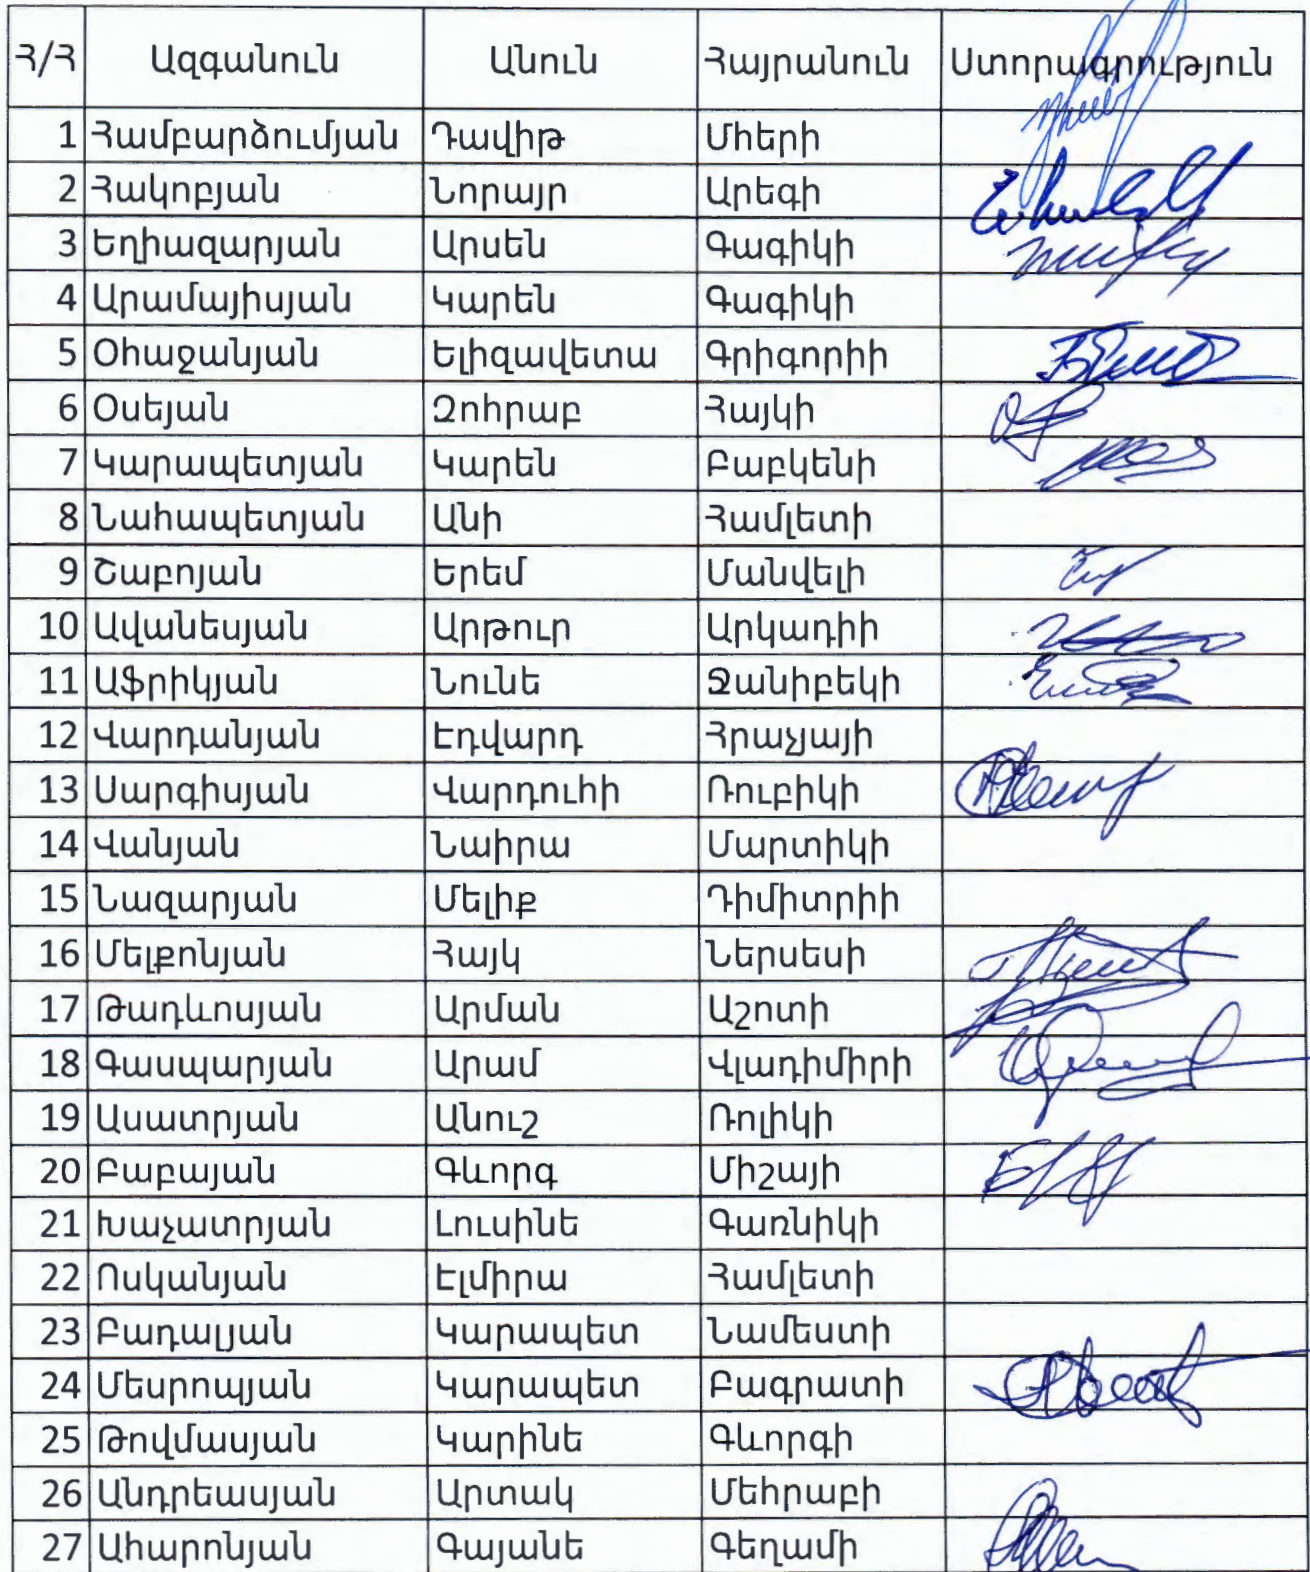 Հ/Հ Ազգանուն Անուն Հայրանուն Ստորագրություն
1 Համբարձումյան Դավիթ Մհերի
2 Հակոբյան Նորայր Արեգի
3 Եղիազարյան Արսեն Գագիկի
4 Արամայիսյան Կարեն Գագիկի
5 Օհաջանյան Ելիզավետա Գրիգորիի
6 Օսեյան Զոհրաբ Հայկի
7 Կարապետյան Կարեն Բաբկենի
8 Նահապետյան Անի Համլետի
9 Շաբոյան Երեմ Մանվելի
10 Ավանեսյան Արթուր Արկադիի
11 Աֆրիկյան Նունե Ջանիբեկի
12 Վարդանյան Էդվարդ Հրաչյայի
13 Սարգիսյան Վարդուհի Ռուբիկի
14 Վանյան Նաիրա Մարտիկի
15 Նազարյան Մելիք Դիմիտրիի
16 Մելքոնյան Հայկ Ներսեսի
17 Թադևոսյան Արման Աշոտի
18 Գասպարյան Արամ Վլադիմիրի
19 Ասատրյան Անուշ Ռոլիկի
20 Բաբայան Գևորգ Միշայի
21 Խաչատրյան Լուսինե Գառնիկի
22 Ոսկանյան Էլմիրա Համլետի
23 Բադալյան Կարապետ Նամեստի
24 Մեսրոպյան Կարապետ Բագրատի
25 Թովմասյան Կարինե Գևորգի
26 Անդրեասյան Արտակ Մեհրաբի
27 Ահարոնյան Գայանե Գեղամի